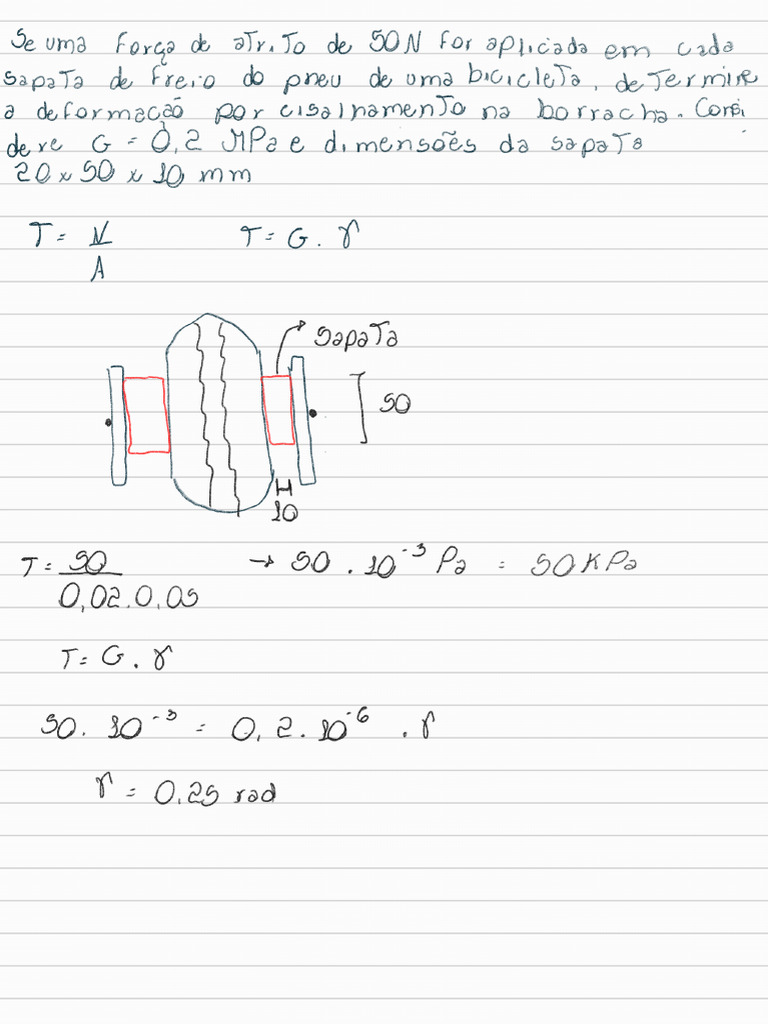 Se uma força de atrito de 50N for aplicada em cada
sapata de freio do pneu de uma bicicleta, determine
a deformação por cisalhamento na borracha. Consi
dere G = 0,2 MPa e dimensões da sapata
20 x 50 x 10 mm
T = V/A T = G . γ
sapata
50
10
T = 50/0,02.0,05 → 50 . 10⁻³ Pa = 50 KPa
T = G . γ
50 . 10⁻³ = 0,2 . 10⁻⁶ . γ
γ = 0,25 rad